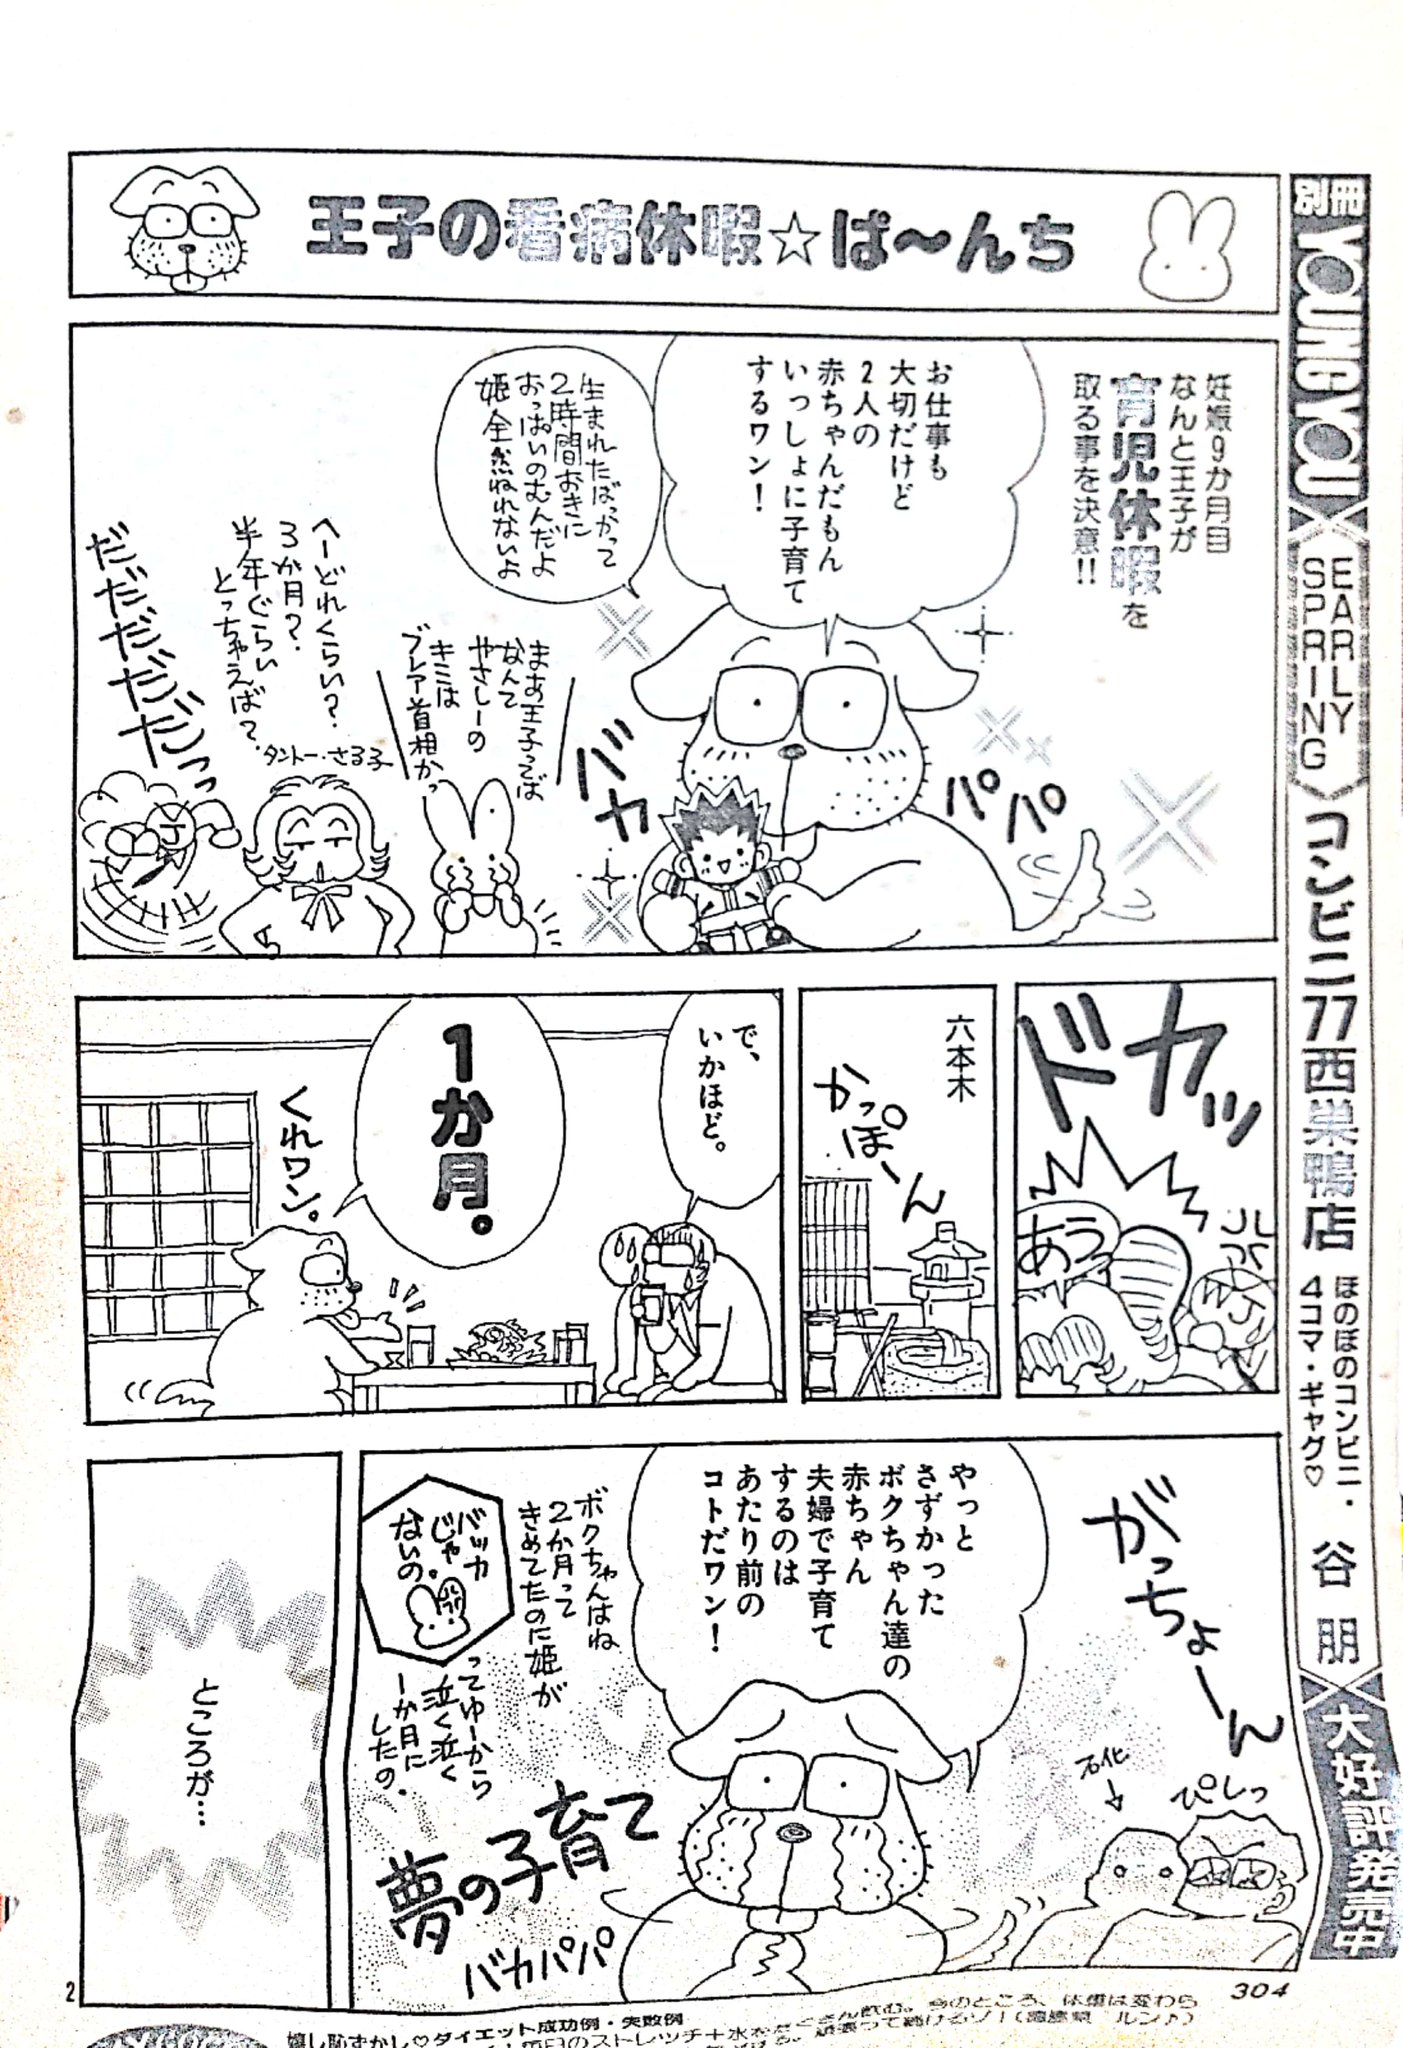 王子の看病休暇☆ぱ〜んち
別冊
YOUNG YOU
EARLY
SPRING
コンビニ77西巣鴨店
ほのぼのコンビニ・
4コマ・ギャグ♡
谷 朋
大好評発売中
妊娠9か月目
なんと王子が
育児休暇を
取る事を決意!!
お仕事も
大切だけど
2人の
赤ちゃんだもん
いっしょに子育て
するワン!
生まれたばっかって
2時間おきに
おっぱいのむんだよ
姫全然ねれないよ
パパ
バカ
まあ王子ってば
なんて
やさしーの
キミは
ブレア首相かっ
へーどれくらい?
3か月?
半年ぐらい
とっちゃえば?
タントー・さる子
だだだだだだっっ
ドカッ
あうっ
六本木
かっぽーん
で、
いかほど。
1か月。
くれワン。
がっちょーん
やっと
さずかった
ボクちゃん達の
赤ちゃん
夫婦で子育て
するのは
あたり前の
コトだワン!
石化
ぴしっ
ボクちゃんはね
2か月って
きめてたのに姫が
バッカ
じゃ
ないの。
ってゆーから
泣く泣く
一か月に
したの。
夢の子育て
バカパパ
ところが…
2
304
嬉し恥ずかし♡ダイエット成功例・失敗例